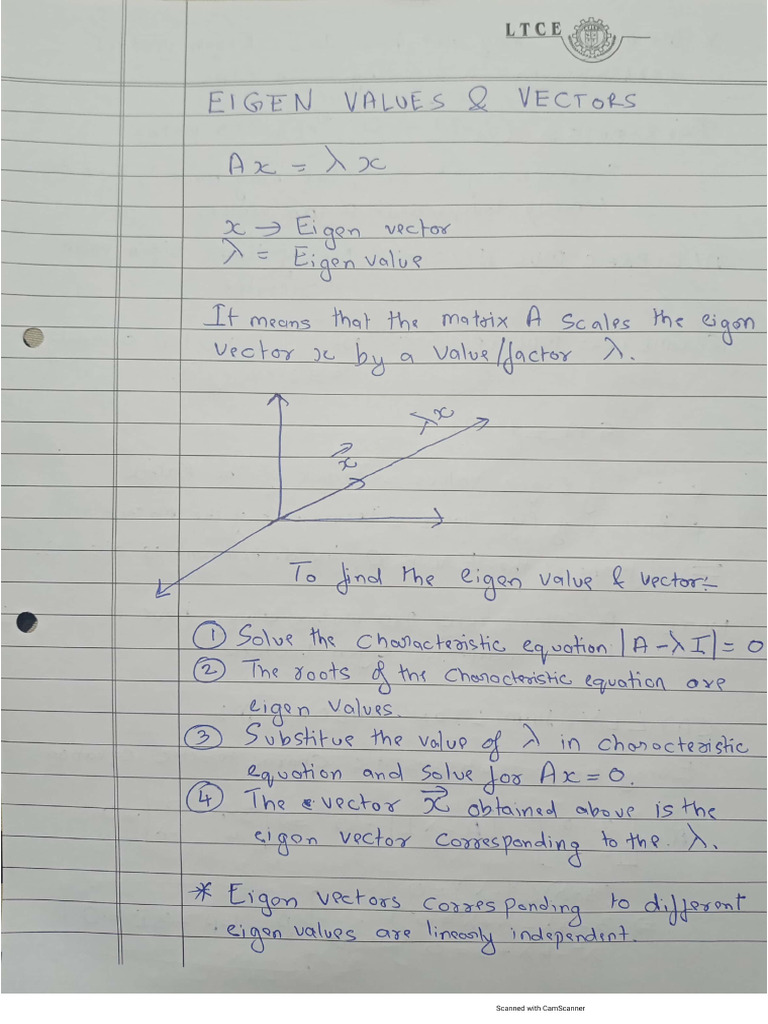 LTCE
EIGEN VALUES & VECTORS
Ax = λx
x → Eigen vector
λ = Eigen value
It means that the matrix A scales the eigen
vector x by a value/factor λ.
λx
x⃗
To find the eigen value & vector:-
① Solve the characteristic equation |A-λI| = 0
② The roots of the characteristic equation are
eigen values.
③ Substitue the value of λ in characteristic
equation and solve for Ax = 0.
④ The vector x⃗ obtained above is the
eigen vector corresponding to the λ.
* Eigen vectors corresponding to different
eigen values are linearly independent.
Scanned with CamScanner